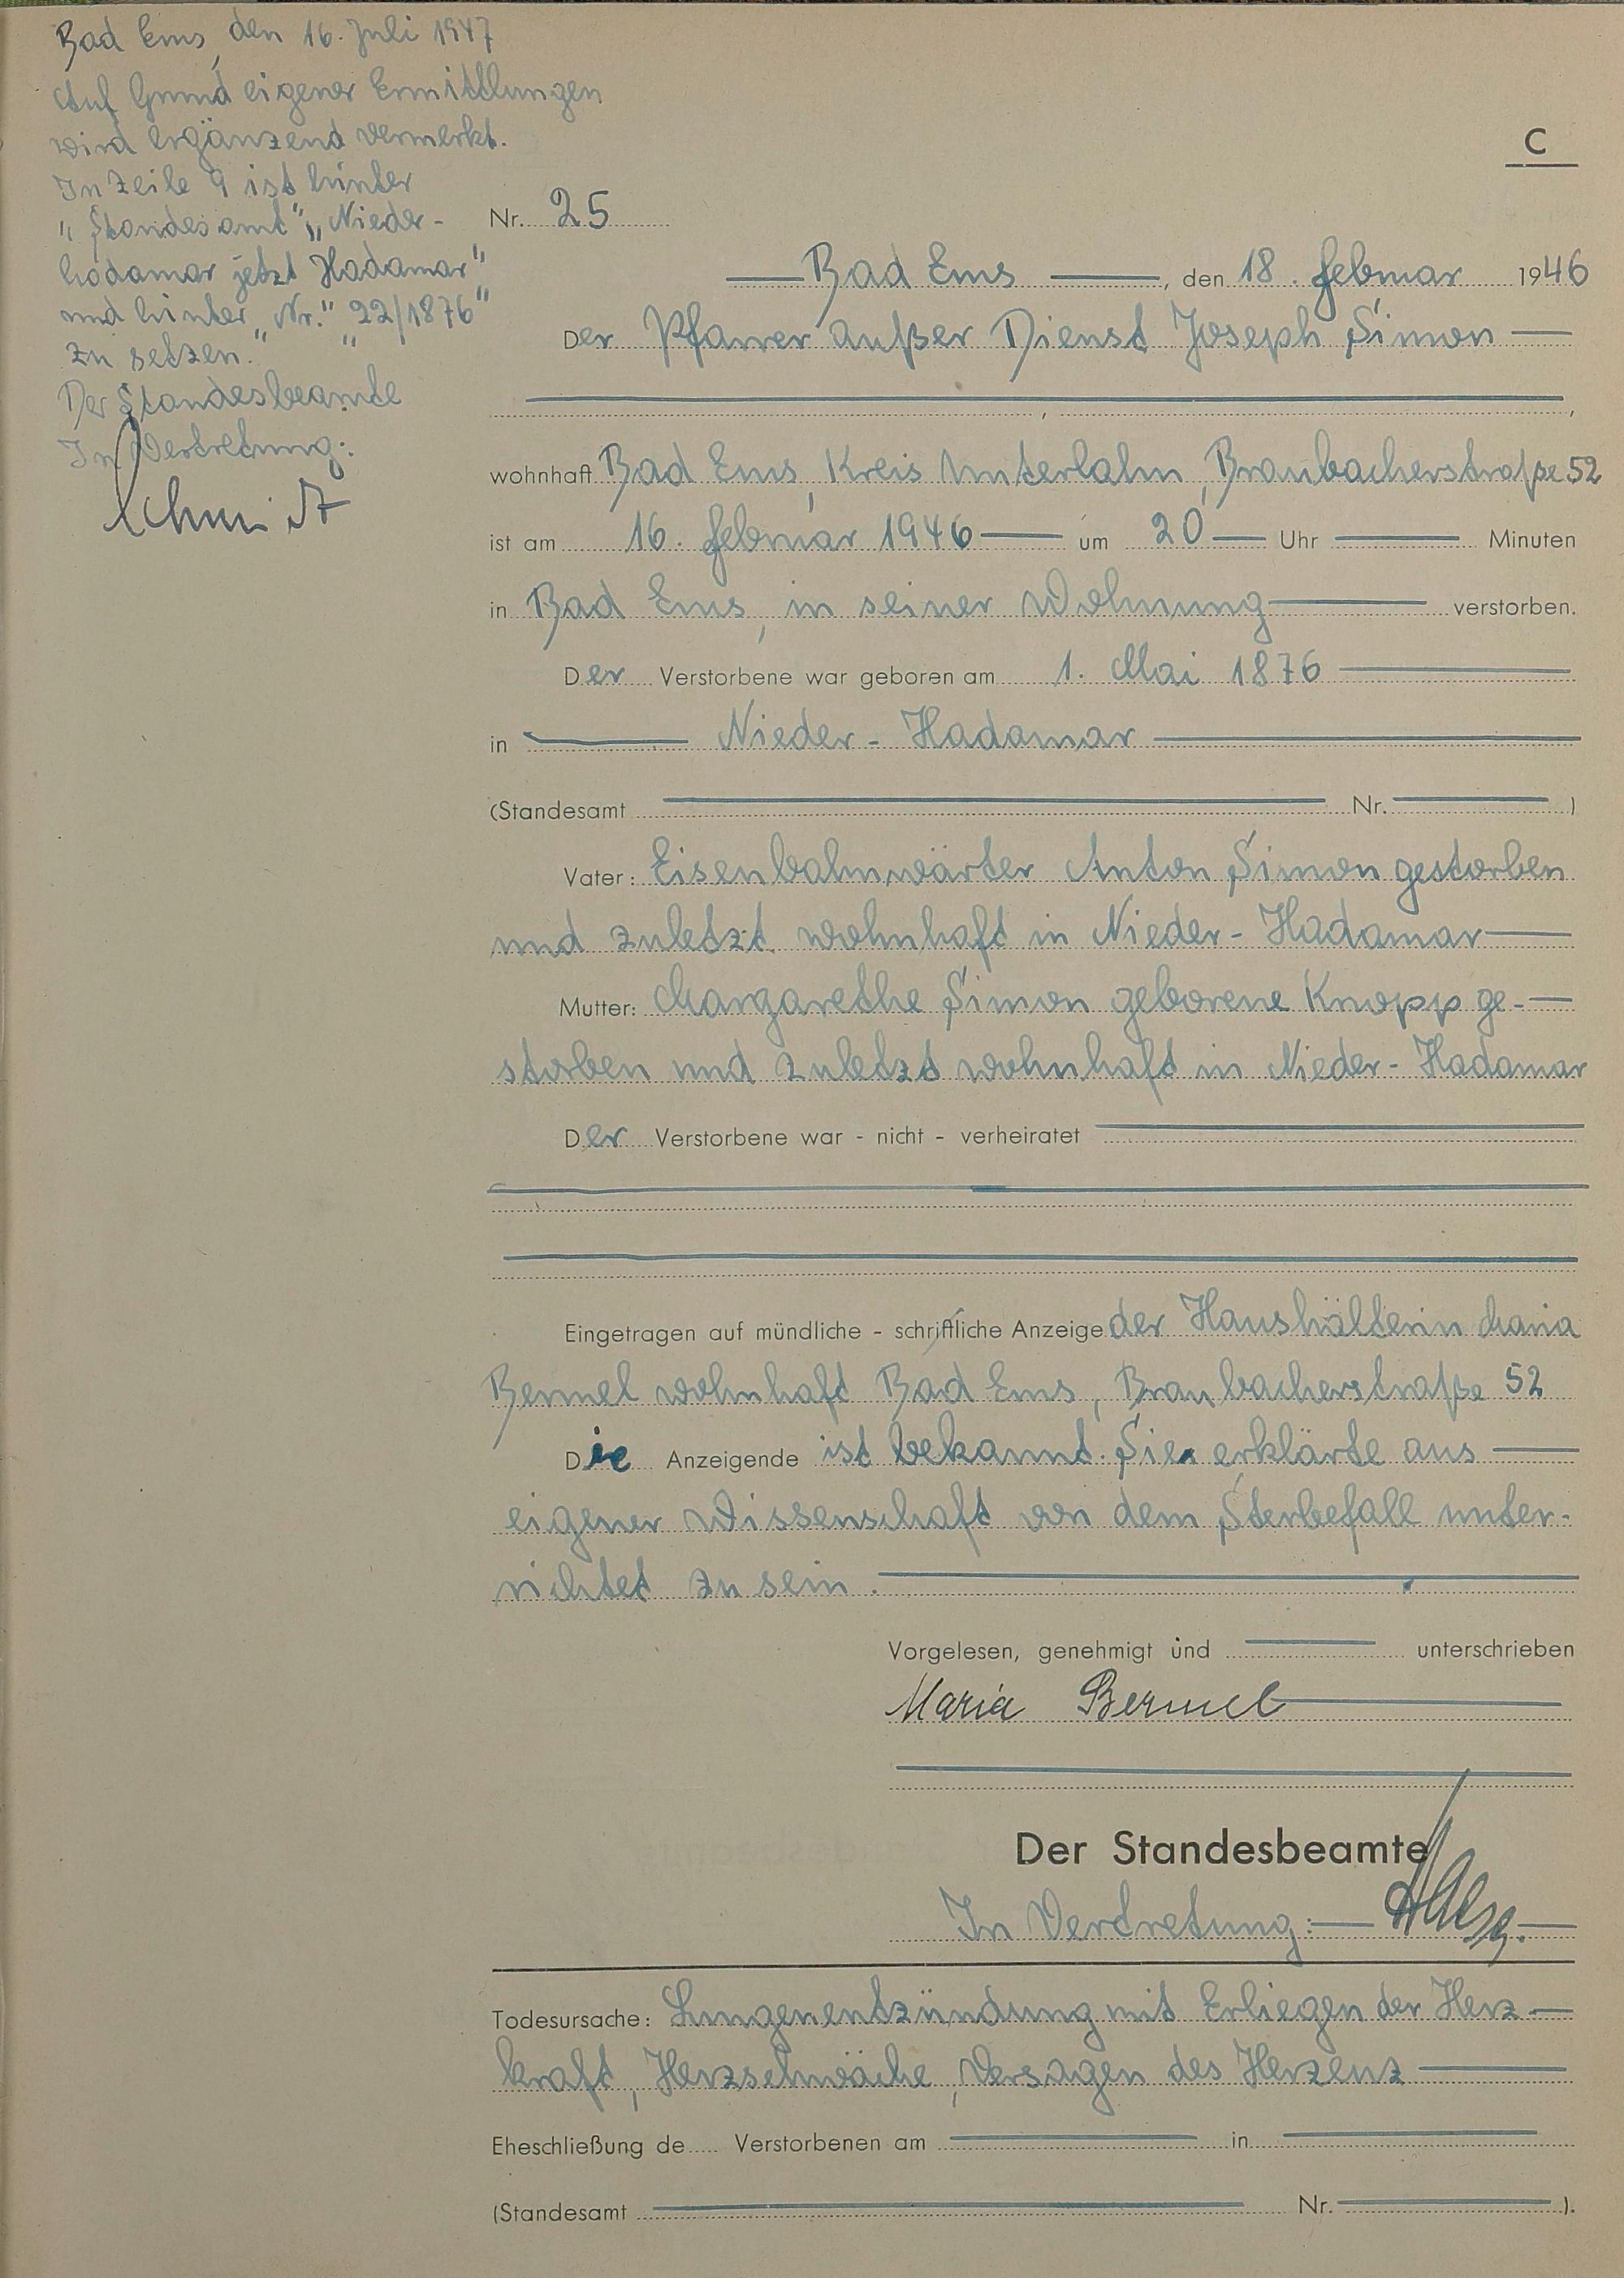 Bad Ems, den 16. Juli 1947
Auf Grund eigener Ermittlungen
wird ergänzend vermerkt.
In Zeile 9 ist hinter
"Standesamt" "Nieder-
hadamar jetzt Hadamar"
und hinter "Nr." "22/1876"
zu setzen."
Der Standesbeamte
In Vertretung:
Schmidt
C
Nr. 25
Bad Ems, den 18. Februar 1946
Der Pfarrer außer Dienst Joseph Simon
wohnhaft Bad Ems, Kreis Unterlahn, Braubacherstraße 52
ist am 16. Februar 1946 um 20 Uhr Minuten
in Bad Ems, in seiner Wohnung verstorben.
Der Verstorbene war geboren am 1. Mai 1876
in Nieder-Hadamar
(Standesamt Nr. )
Vater: Eisenbahnwärter Anton Simon gestorben
und zuletzt wohnhaft in Nieder-Hadamar
Mutter: Margarethe Simon geborene Knopp ge-
storben und zuletzt wohnhaft in Nieder-Hadamar
Der Verstorbene war - nicht - verheiratet
Eingetragen auf mündliche - schriftliche Anzeige der Haushälterin Maria
Bermel wohnhaft Bad Ems, Braubacherstraße 52
Die Anzeigende ist bekannt. Sie erklärte aus
eigener Wissenschaft von dem Sterbefall unter-
richtet zu sein.
Vorgelesen, genehmigt und unterschrieben
Maria Bermel
Der Standesbeamte
In Vertretung:
Todesursache: Lungenentzündung mit Erliegen der Herz-
kraft, Herzschwäche, Versagen des Herzenz
Eheschließung de Verstorbenen am in
(Standesamt Nr. ).